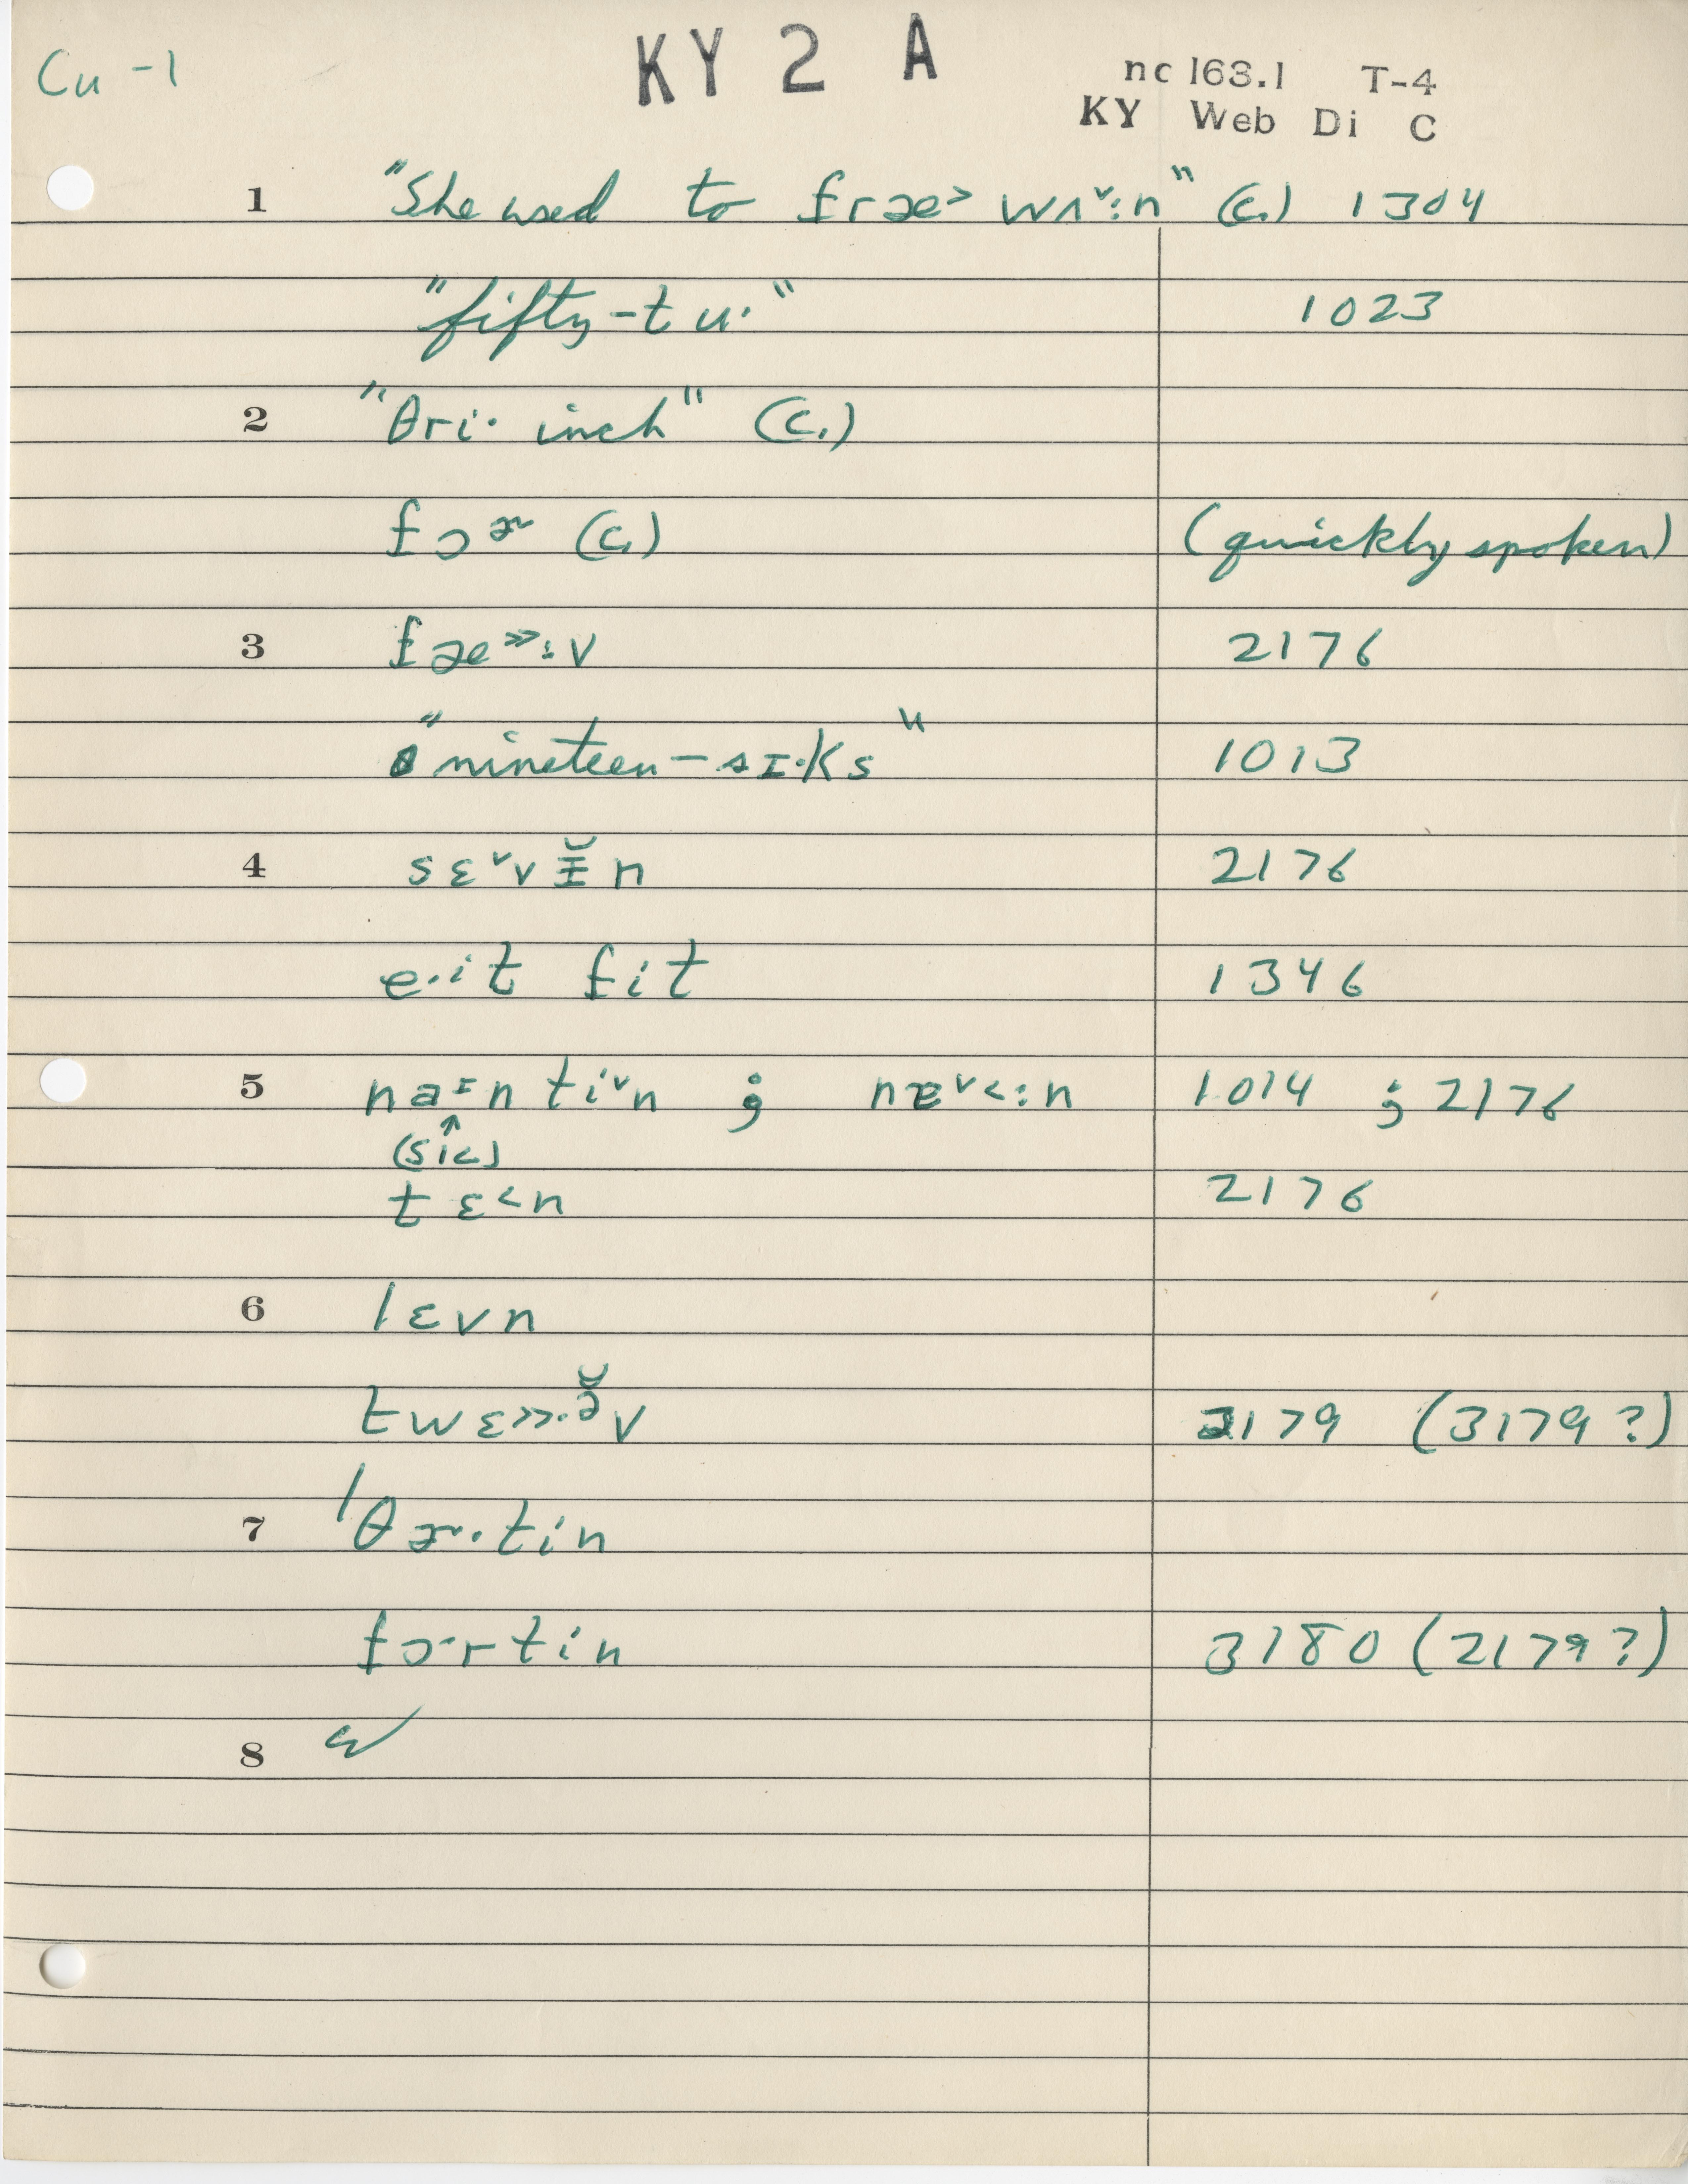 Cu-1
KY 2 A
nc 163.1 T-4
KY Web Di C
1 "She used to fræ> wʌ˅:n" (c.) 1304
"fifty-tu·" 1023
2 "θri· inch" (c.)
fɔɚ (c.) (quickly spoken)
3 fæ>>:v 2176
"nineteen-sɪ·ks" 1013
4 sɛ˅vɪ̵̆n 2176
e·it fit 1346
5 naɪn ti˅n ; næ˅<:n 1014 ; 2176
↑
(sic)
tɛ<n 2176
6 lɛvn
twɛ>>·ə̆v 2179 (3179?)
7 ˈθɚ·tin
fɔ·rtin 3180 (2179?)
8